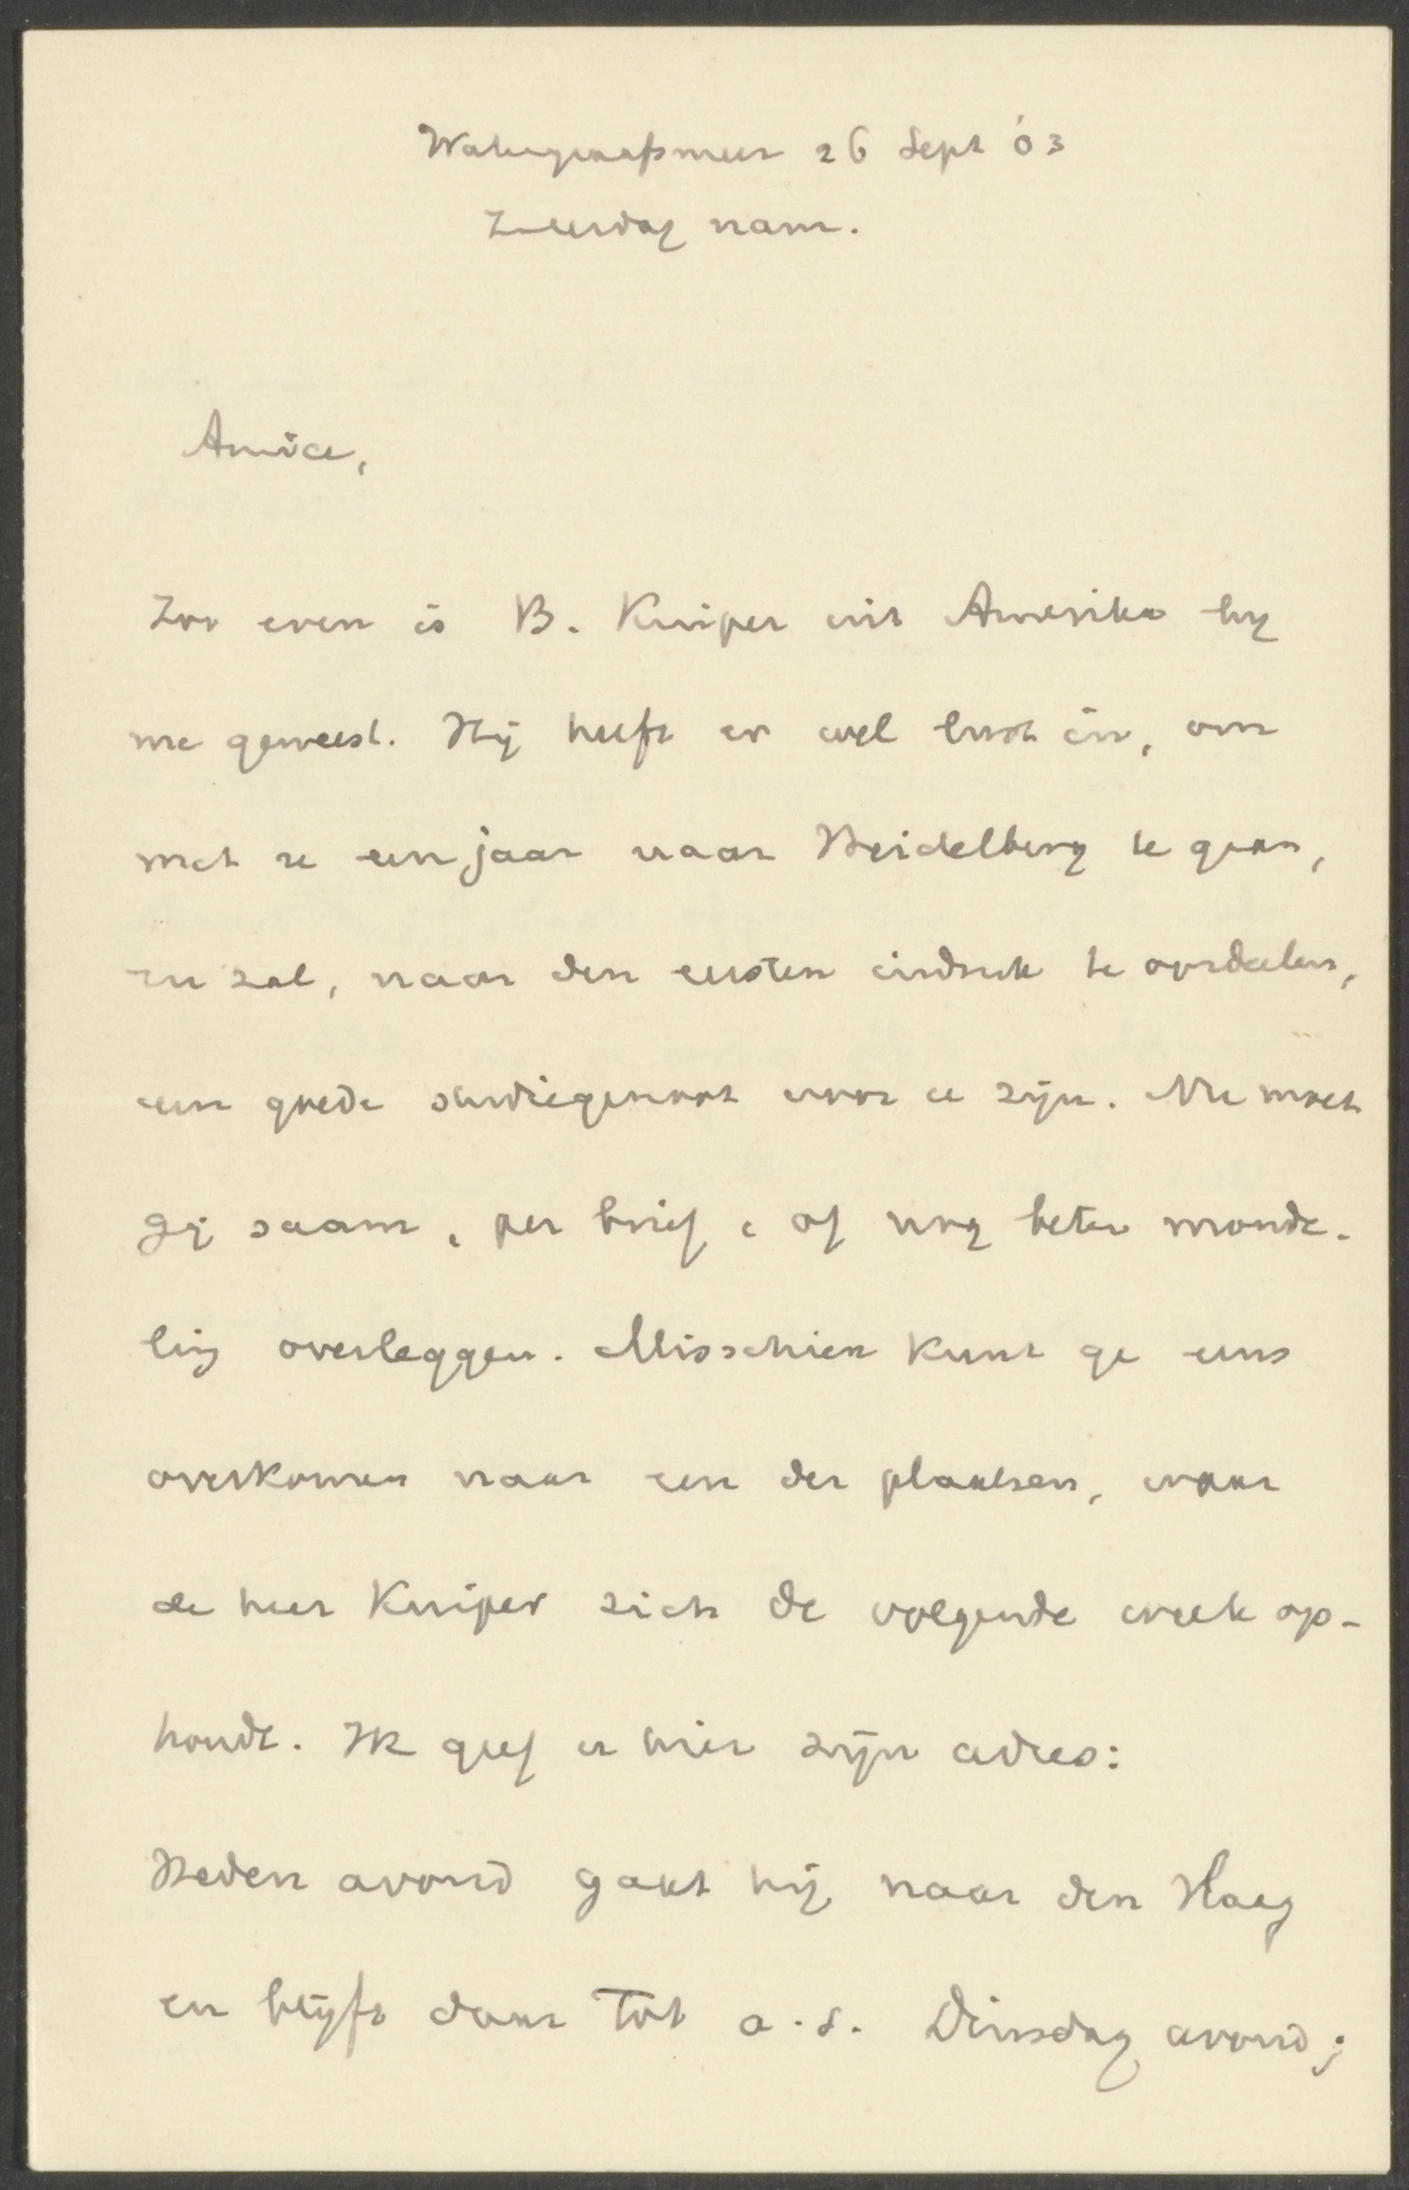 Watergraafsmeer 26 Sept '03
Zaterdag nam.
Amice,
Zoo even is B. Kuiper uit Amerika by
me geweest. Hij heeft er wel lust in, om
met u een jaar naar Heidelberg te gaan,
en zal, naar den eersten indruk te oordeelen,
een goede studiegenoot voor u zijn. Nu moet
gij saam, per brief, of nog beter monde-
ling overleggen. Misschien kunt ge eens
overkomen naar een der plaatsen, waar
de heer Kuiper zich de volgende week op-
houdt. Ik geef u hier zijn adres:
Heden avond gaat hij naar den Haag
en blijft daar tot a.s. Dinsdag avond;